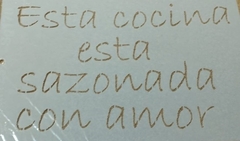 Esta cocina
esta
sazonada
con amor